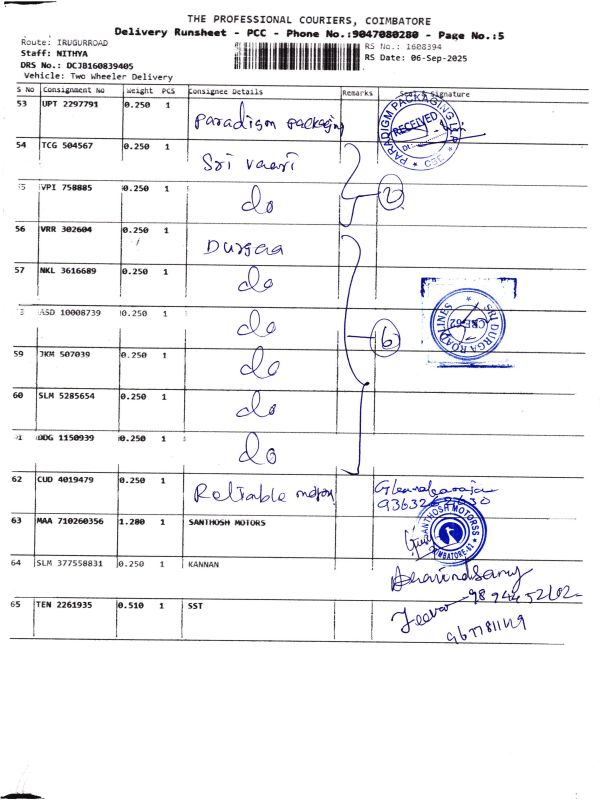 THE PROFESSIONAL COURIERS, COIMBATORE
Delivery Runsheet - PCC - Phone No.:9047080280 - Page No.:5
Route: IRUGURROAD
RS No.: 1608394
Staff: NITHYA
RS Date: 06-Sep-2025
DRS No.: DCJB160839405
Vehicle: Two Wheeler Delivery
S No Consignment No Weight PCS Consignee Details Remarks Seal & Signature
53 UPT 2297791 0.250 1 Paradigm packaging
PARADIGM PACKAGING LLP
RECEIVED
CBE
54 TCG 504567 0.250 1 Sri vaari
VPI 758885 0.250 1 do 2
56 VRR 302604 0.250 1 Durgaa
57 NKL 3616689 0.250 1 do
ASD 10008739 0.250 1 do 6
SRI DURGA ROADLINES
CBE-62
59 JKM 507039 0.250 1 do
60 SLM 5285654 0.250 1 do
DDG 1150939 0.250 1 do
62 CUD 4019479 0.250 1 Reliable motors
63 MAA 710260356 1.280 1 SANTHOSH MOTORS
SANTHOSH MOTORSS
COIMBATORE-61
64 SLM 377558831 0.250 1 KANNAN
65 TEN 2261935 0.510 1 SST